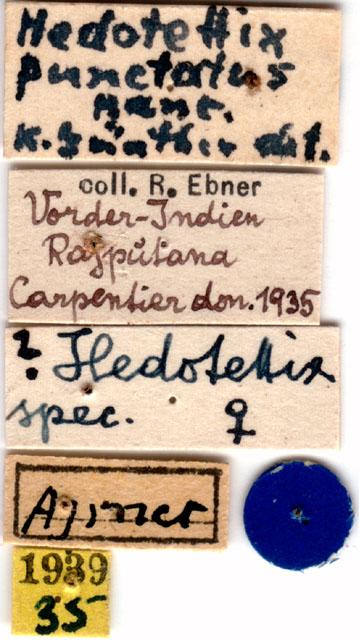 Hedotettix
punctatus
Hanc.
K. Günther det.
coll. R. Ebner
Vorder-Indien
Rajpütana
Carpentier don. 1935
? Hedotettix
spec. ♀
Ajmer
1939
35